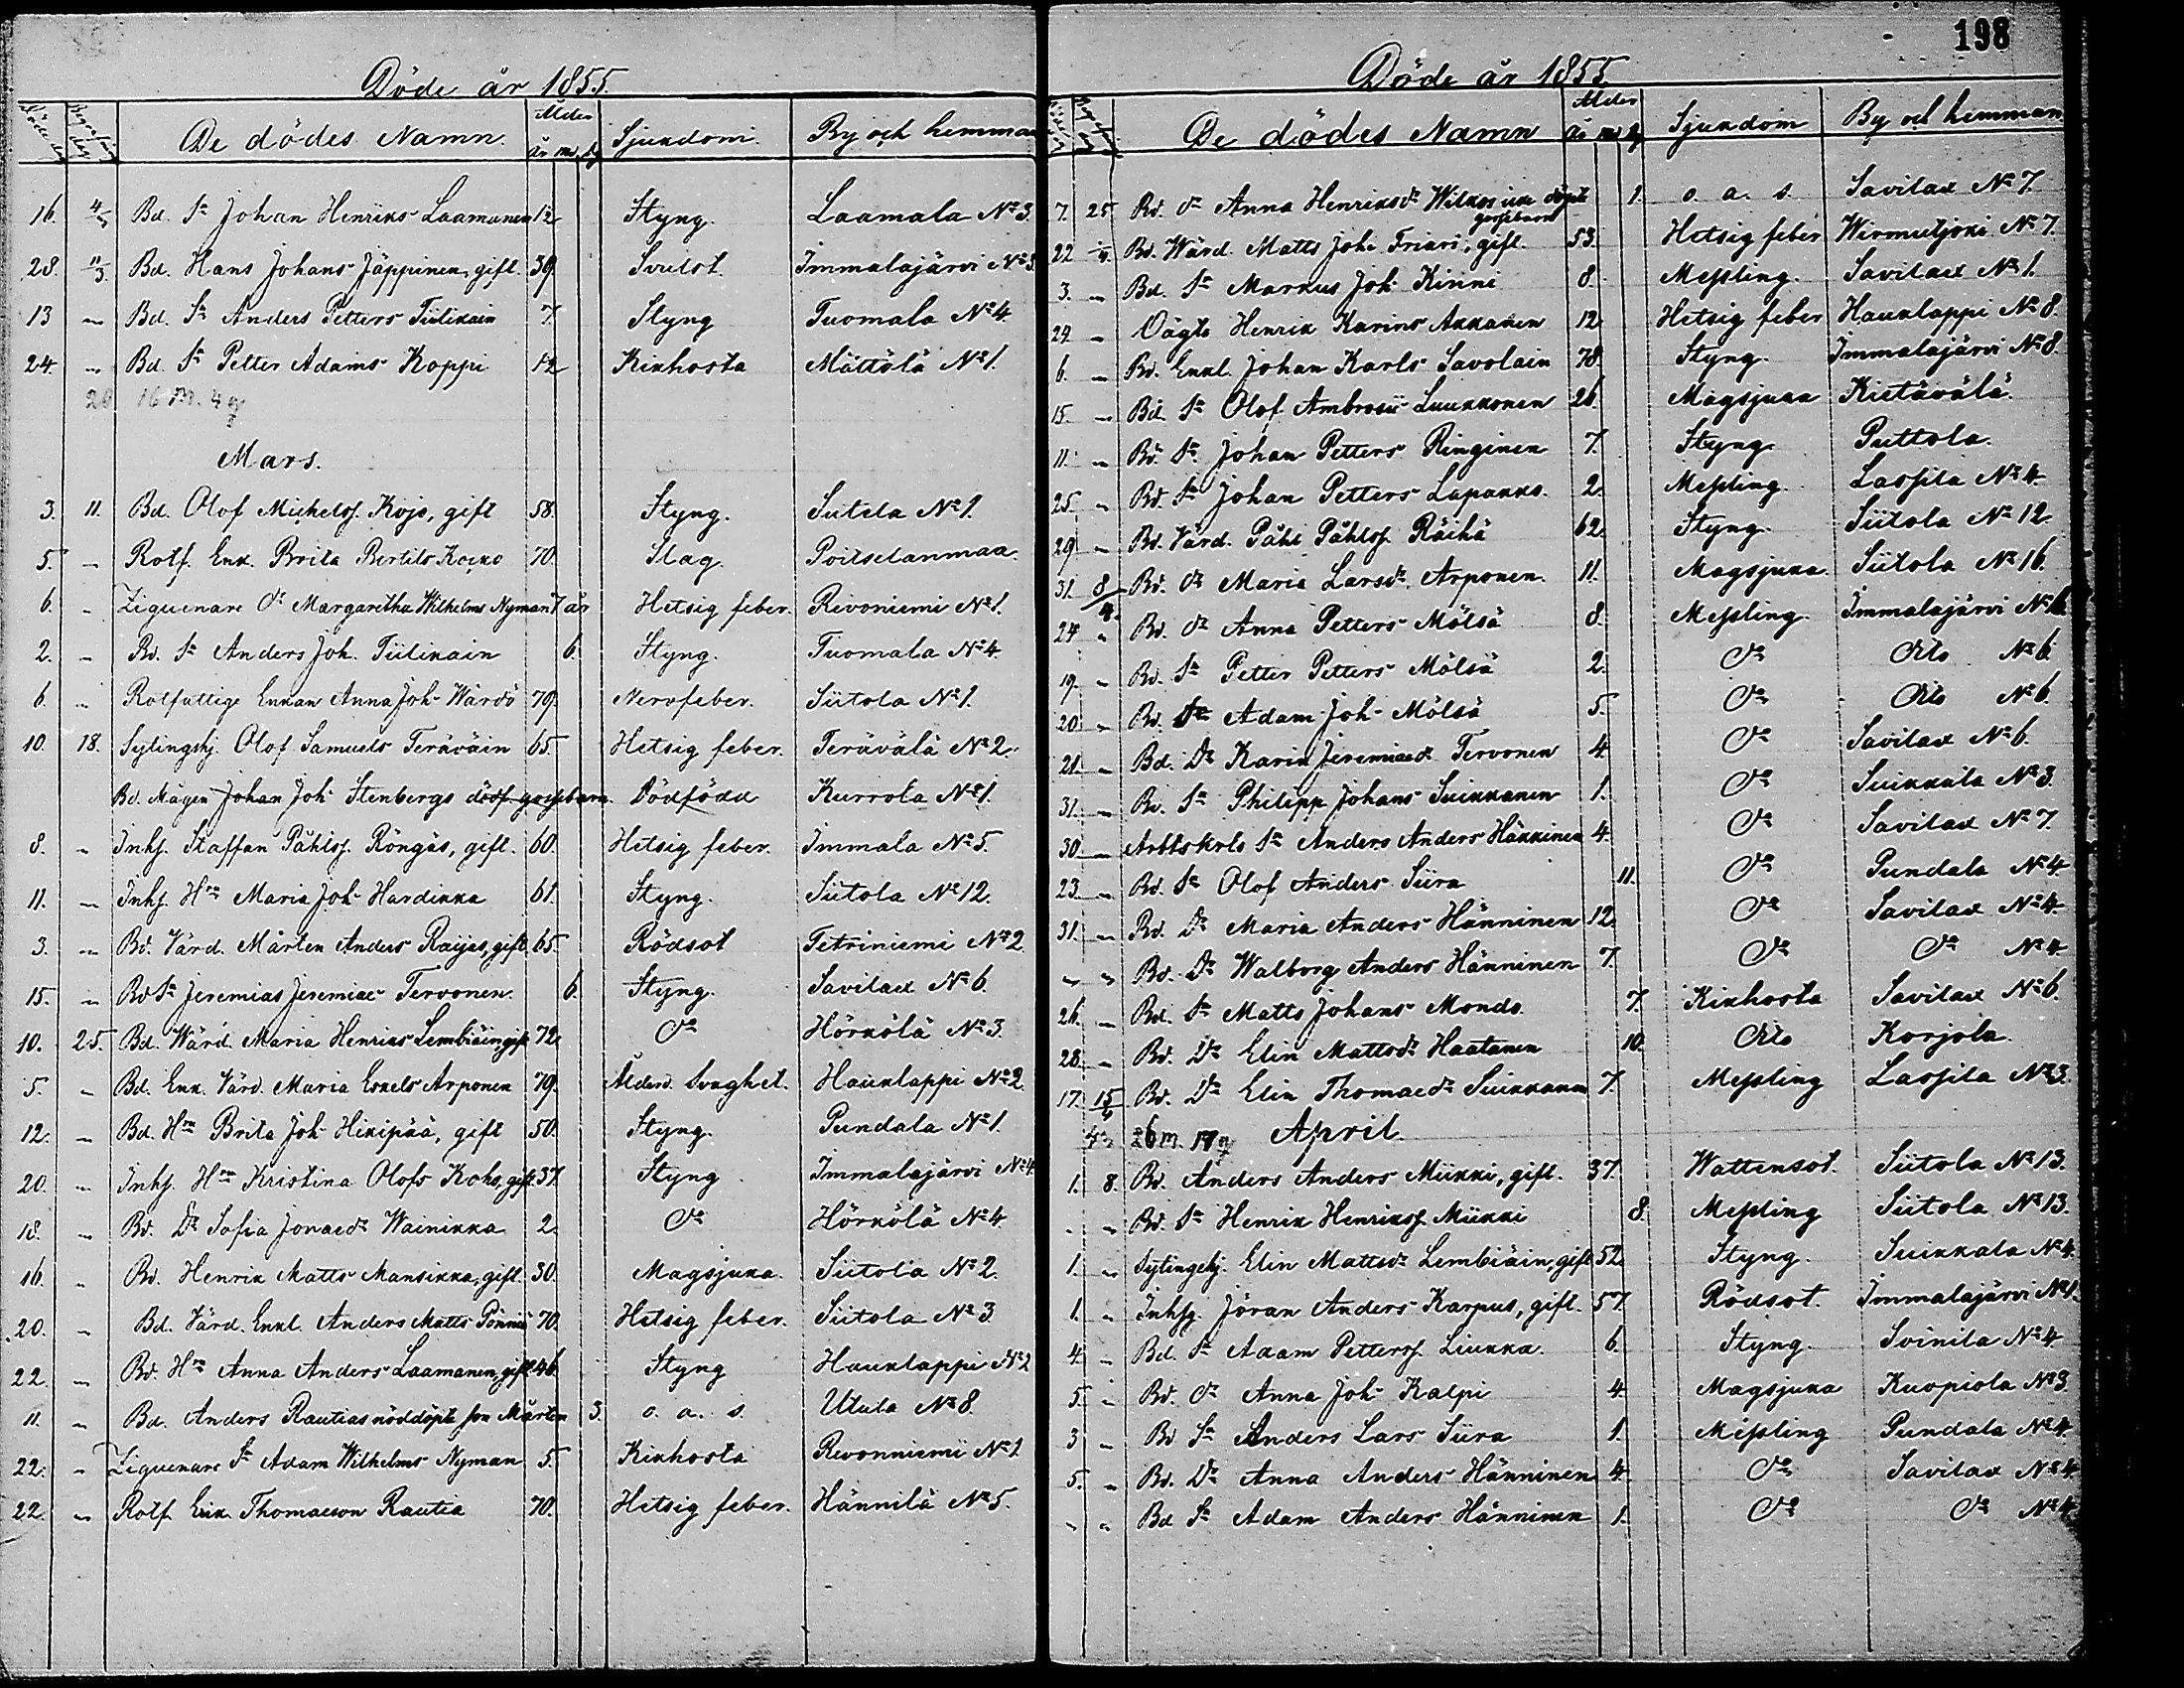 Döde år 1855.
Döde dag Begrafn. dag De dödes Namn. Ålder år md. dg. Sjukdom. By och hemman
16. 4/3 Bd. Sn Johan Henriks Laamanen 12 Styng. Laamala No 3.
28. 11/3. Bd. Hans Johans Jäppinen, gift. 39. Svulst. Immalajärvi No 3.
13 " Bd. Sn Anders Petters Tiilikain 7. Styng Tuomala No 4
24. " Bd. Sn Petter Adams Koppi 12 Kikhosta Mättölä No 1.
20 16 m. 4 q
Mars.
3. 11. Bd. Olof Michelss. Kojo, gift 58. Styng. Sutela No 1.
5. " Rotf. Enk. Brita Bertils Koiko 70. Slag. Poitsclanmaa.
6. " Ziguenare Dr Margaretha Wilhelms Nyman 7 år Hetsig feber. Rivoniemi No 1.
2. " Bd. Sn Anders Joh. Tiilikain 6. Styng. Tuomala No 4.
6. " Rotfattige Enkan Anna Joh. Wärdö 79. Nervfeber. Siitola No 1.
10. 18. Sytingshj. Olof Samuels Teräväin 65 Hetsig feber. Terävälä No 2.
Bd. Mågen Johan Joh. Stenbergs dödf. gossebarn. Dödfödd Kurrola No 1.
8. " Inhs. Staffan Påhlss. Röngäs, gift. 60. Hetsig feber. Immala No 5.
11. " Inhs. Hru Maria Joh. Hardikka 61. Styng. Siitola No 12.
3. " Bd. Värd. Mårten Anders Raijas, gift. 65 Rödsot Tetriniemi No 2
15. " Bd Sn Jeremias Jeremiae Tervonen. 6. Styng. Savilax No 6.
10. 25. Bd. Wärd. Maria Henriks Lembiäin gift 72. Do Hörkölä No 3.
5. " Bd. Enk. Värd. Maria Eskels Arponen 79. Ålderd. Svaghet. Hauklappi No 2.
12. " Bd. Hru Brita Joh. Hikipää, gift 50. Styng. Pundala No 1.
20. " Inhs. Hru Kristina Olofs Kohs, gift. 37. Styng Immalajärvi No 4.
18. " Bd. Dr Sofia Jonaedr Wainikka 2. Do Hörkölä No 4
16. " Bd. Henrik Matts Mansikka, gift. 30. Magsjuka. Siitola No 2.
20. " Bd. Värd. Enkl. Anders Matts Pönniä 70. Hetsig feber. Siitola No 3.
22. " Bd. Hru Anna Anders Laamanen, gift 46. Styng Hauklappi No 2
11. " Bd. Anders Rautias nöddöpte son Mårten 3. o. a. s. Utula No 8.
22. " Ziguenare Sn Adam Wilhelms Nyman 5. Kikhosta Revonniemi No 1
22. " Rotf. Erik Thomaeson Rautia 70. Hetsig feber. Hännilä No 5.
198
Döde år 1855.
De dödes Namn Ålder år md. dg. Sjukdom By och hemman
7. 25 Bd. Dr Anna Henriksdr Wilkos icke döpte gossebarn 1. o. a. s. Savilax No 7.
22 " Bd. Wärd. Matts Joh. Friari, gift. 53. Hetsig feber Wirmutjoki No 7.
3. " Bd. Sn Markus Joh. Kinni 8. Messling. Savilax No 1.
24. " Oägte Henrik Karins Akkanen 12 Hetsig feber Hauklappi No 8.
6. " Bd. Enkl. Johan Karls Savolain 78. Styng. Immalajärvi No 8.
15. " Bd. Sn Olof Ambrosii Luukkonen 26. Magsjuka Kietävälä.
11. " Bd. Sn Johan Petters Ringinen 7. Styng Puttola.
25. " Bd. Sn Johan Petters Lapakko. 2. Messling. Lassila No 4
29 " Bd. Värd. Påhl Påhlss. Räihä 62. Styng. Siitola No 12.
31. 8/4. Bd. Dr Maria Larsdr Arponen. 11. Magsjuka. Siitola No 16.
24 " Bd. Dr Anna Petters Mölsä 8. Messling. Immalajärvi No 6
19. " Bd. Sn Petter Petters Mölsä 2. Do Dito No 6.
20. " Bd. Sn Adam Joh. Mölsä 5. Do Dito No 6.
21. " Bd. Dr Karin Jeremiaedr Tervonen 4. Do Savilax No 6.
31. " Bd. Sn Philipp Johans Suikkanen 1. Do Suikkala No 3.
30. " Arbtskrls Sn Anders Anders Häkkinen 4. Do Savilax No 7.
23. " Bd. Sn Olof Anders Siira 11. Do Pundala No 4.
31. " Bd. Dr Maria Anders Hänninen 12. Do Savilax No 4.
" " Bd. Dr Walborg Anders Hänninen 7. Do Do No 4
26. " Bd. Sn Matts Johans Monds. 7. Kikhosta Savilax No 6.
28. " Bd. Dr Elin Mattsdr Haatanen 10. Dito Korjola.
17. 15/4 Bd. Dr Elin Thomaedr Suikkanen 7. Messling Lassila No 3.
26 m. 17 q April.
1. 8. Bd. Anders Anders Miikki, gift. 37. Wattensot. Siitola No 13.
" " Bd. Sn Henrik Henrikss. Miikki 8. Messling Siitola No 13.
1. " Sytingehj. Elin Mattsdr Lembiäin, gift 52. Styng. Suikkala No 4.
1. " Inhsg. Jöran Anders Karpus, gift. 57 Rödsot. Immalajärvi No 1.
4. " Bd. Sn Adam Petterss. Liukka. 6. Styng. Soinila No 4
5. " Bd. Dr Anna Joh. Kalpi 4. Magsjuka Kuopiola No 3.
3 " Bd Sn Anders Lars Siira 1. Messling Pundala No 4
5. " Bd. Dr Anna Anders Hänninen 4. Do Savilax No 4
" " Bd Sn Adam Anders Hänninen 1. Do Do No 4.